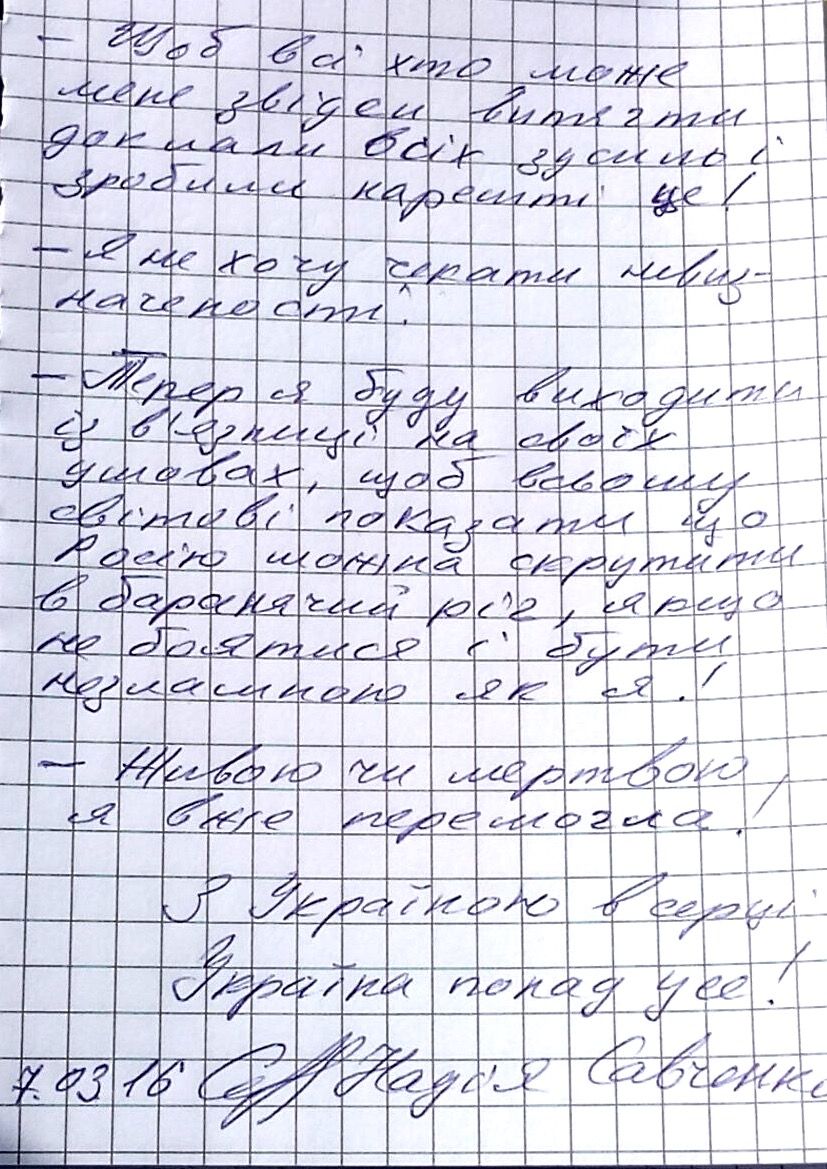 - Щоб всі хто може
мене звідси витягти
доклали всіх зусиль і
зробили нарешті це!
- Я не хочу чекати невиз-
начености!
- Тепер я буду виходити
із в'язниці на своїх
умовах, щоб всьому
світові показати що
Росію можна скрутити
в баранячий ріг, якщо
не боятися і бути
незламною як я!
- Живою чи мертвою
я вже перемогла!
З Україною в серці
Україна понад усе!
7.03 16 Надія Савченко